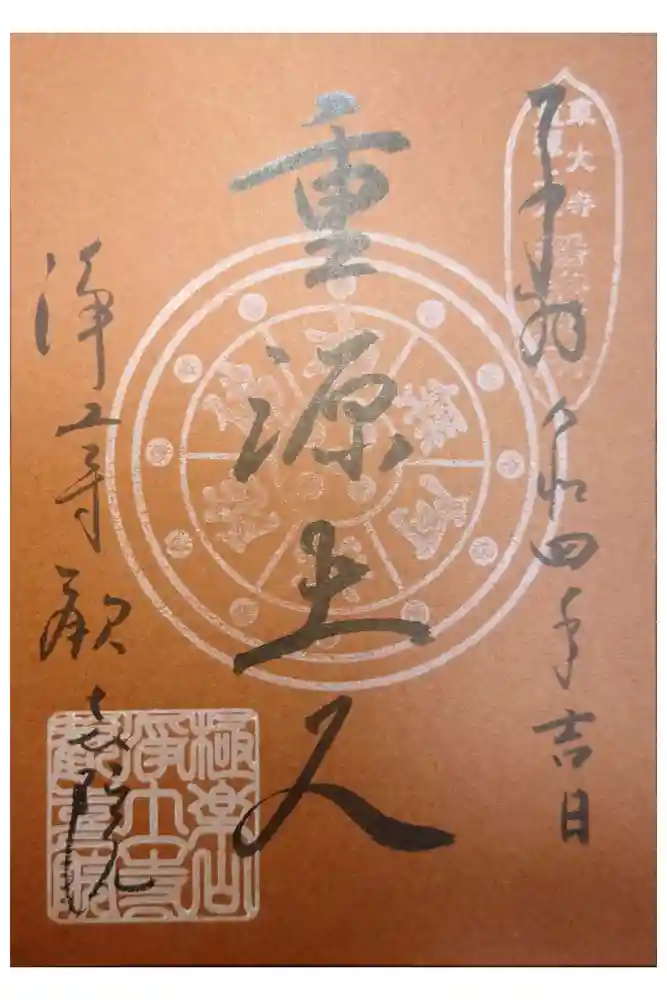 奉拝 令和四年吉日
東大寺
重源上人
浄土寺 歓喜院
極楽山
浄土寺
歓喜院